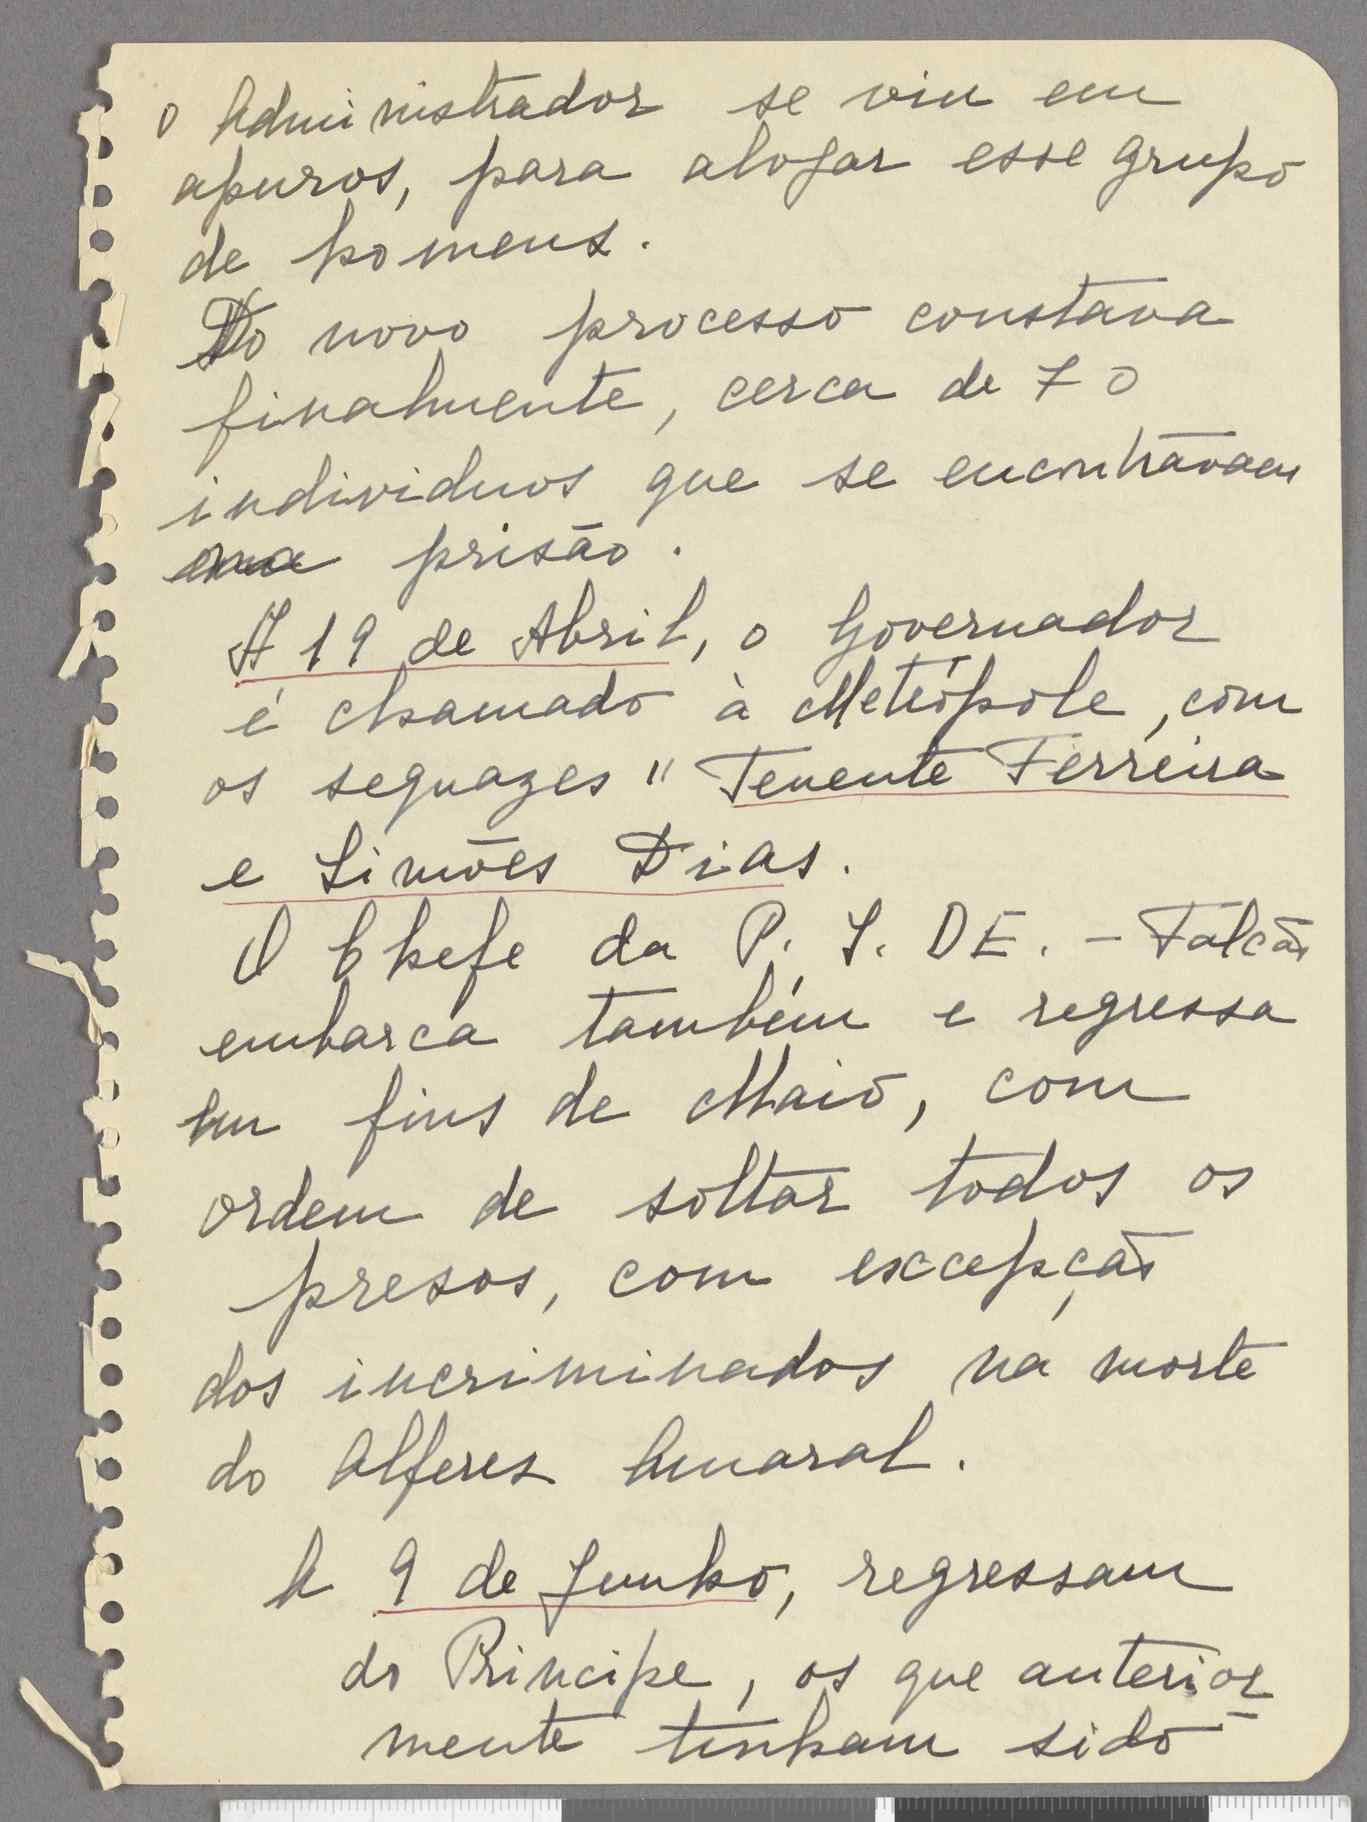 o Administrador se viu em
apuros, para alojar esse grupo
de homens.
Do novo processo constava
finalmente, cerca de 70
individuos que se encontrávam
na prisão.
A 19 de Abril, o Governador
é chamado à Metrópole, com
os sequazes " Tenente Ferreira
e Simões Dias.
O Chefe da P. I. DE. - Falcão
embarca também e regressa
em fins de Maio, com
ordem de soltar todos os
presos, com excepção
dos incriminados na morte
do Alferes Amaral.
A 9 de Junho, regressam
do Principe, os que anterior-
mente tinham sido